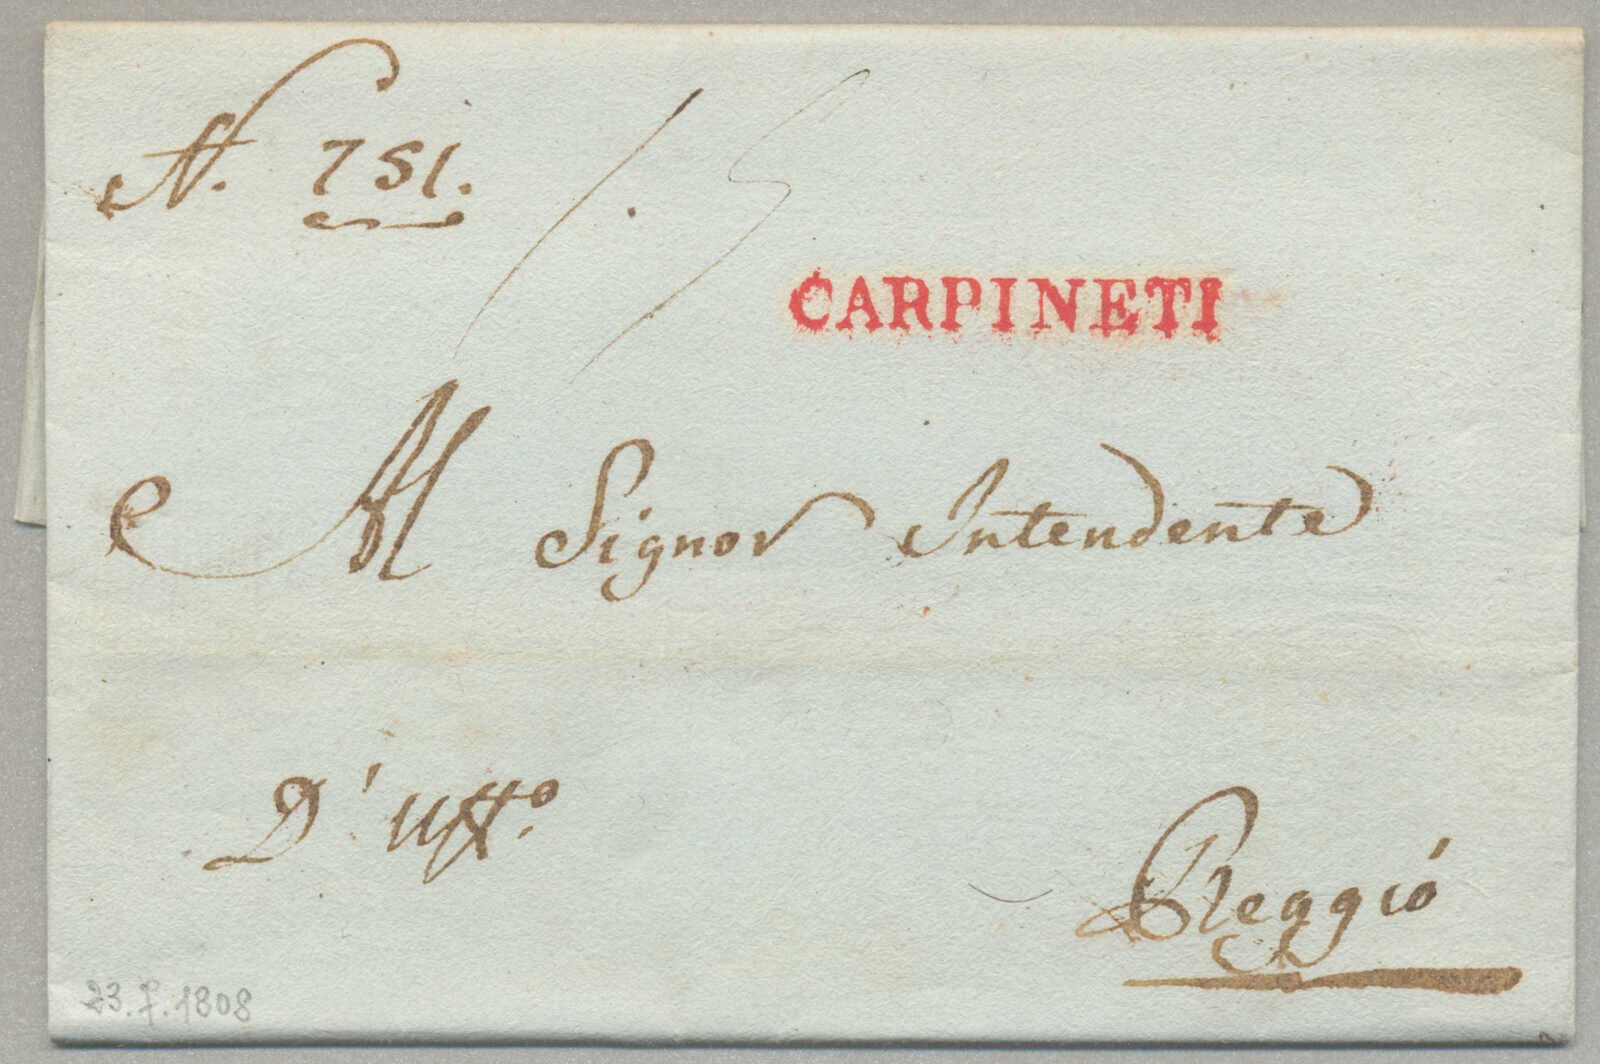 N. 751.
15
CARPINETI
Al Signor Intendente
D'Uff.º
Reggio
23.7.1808